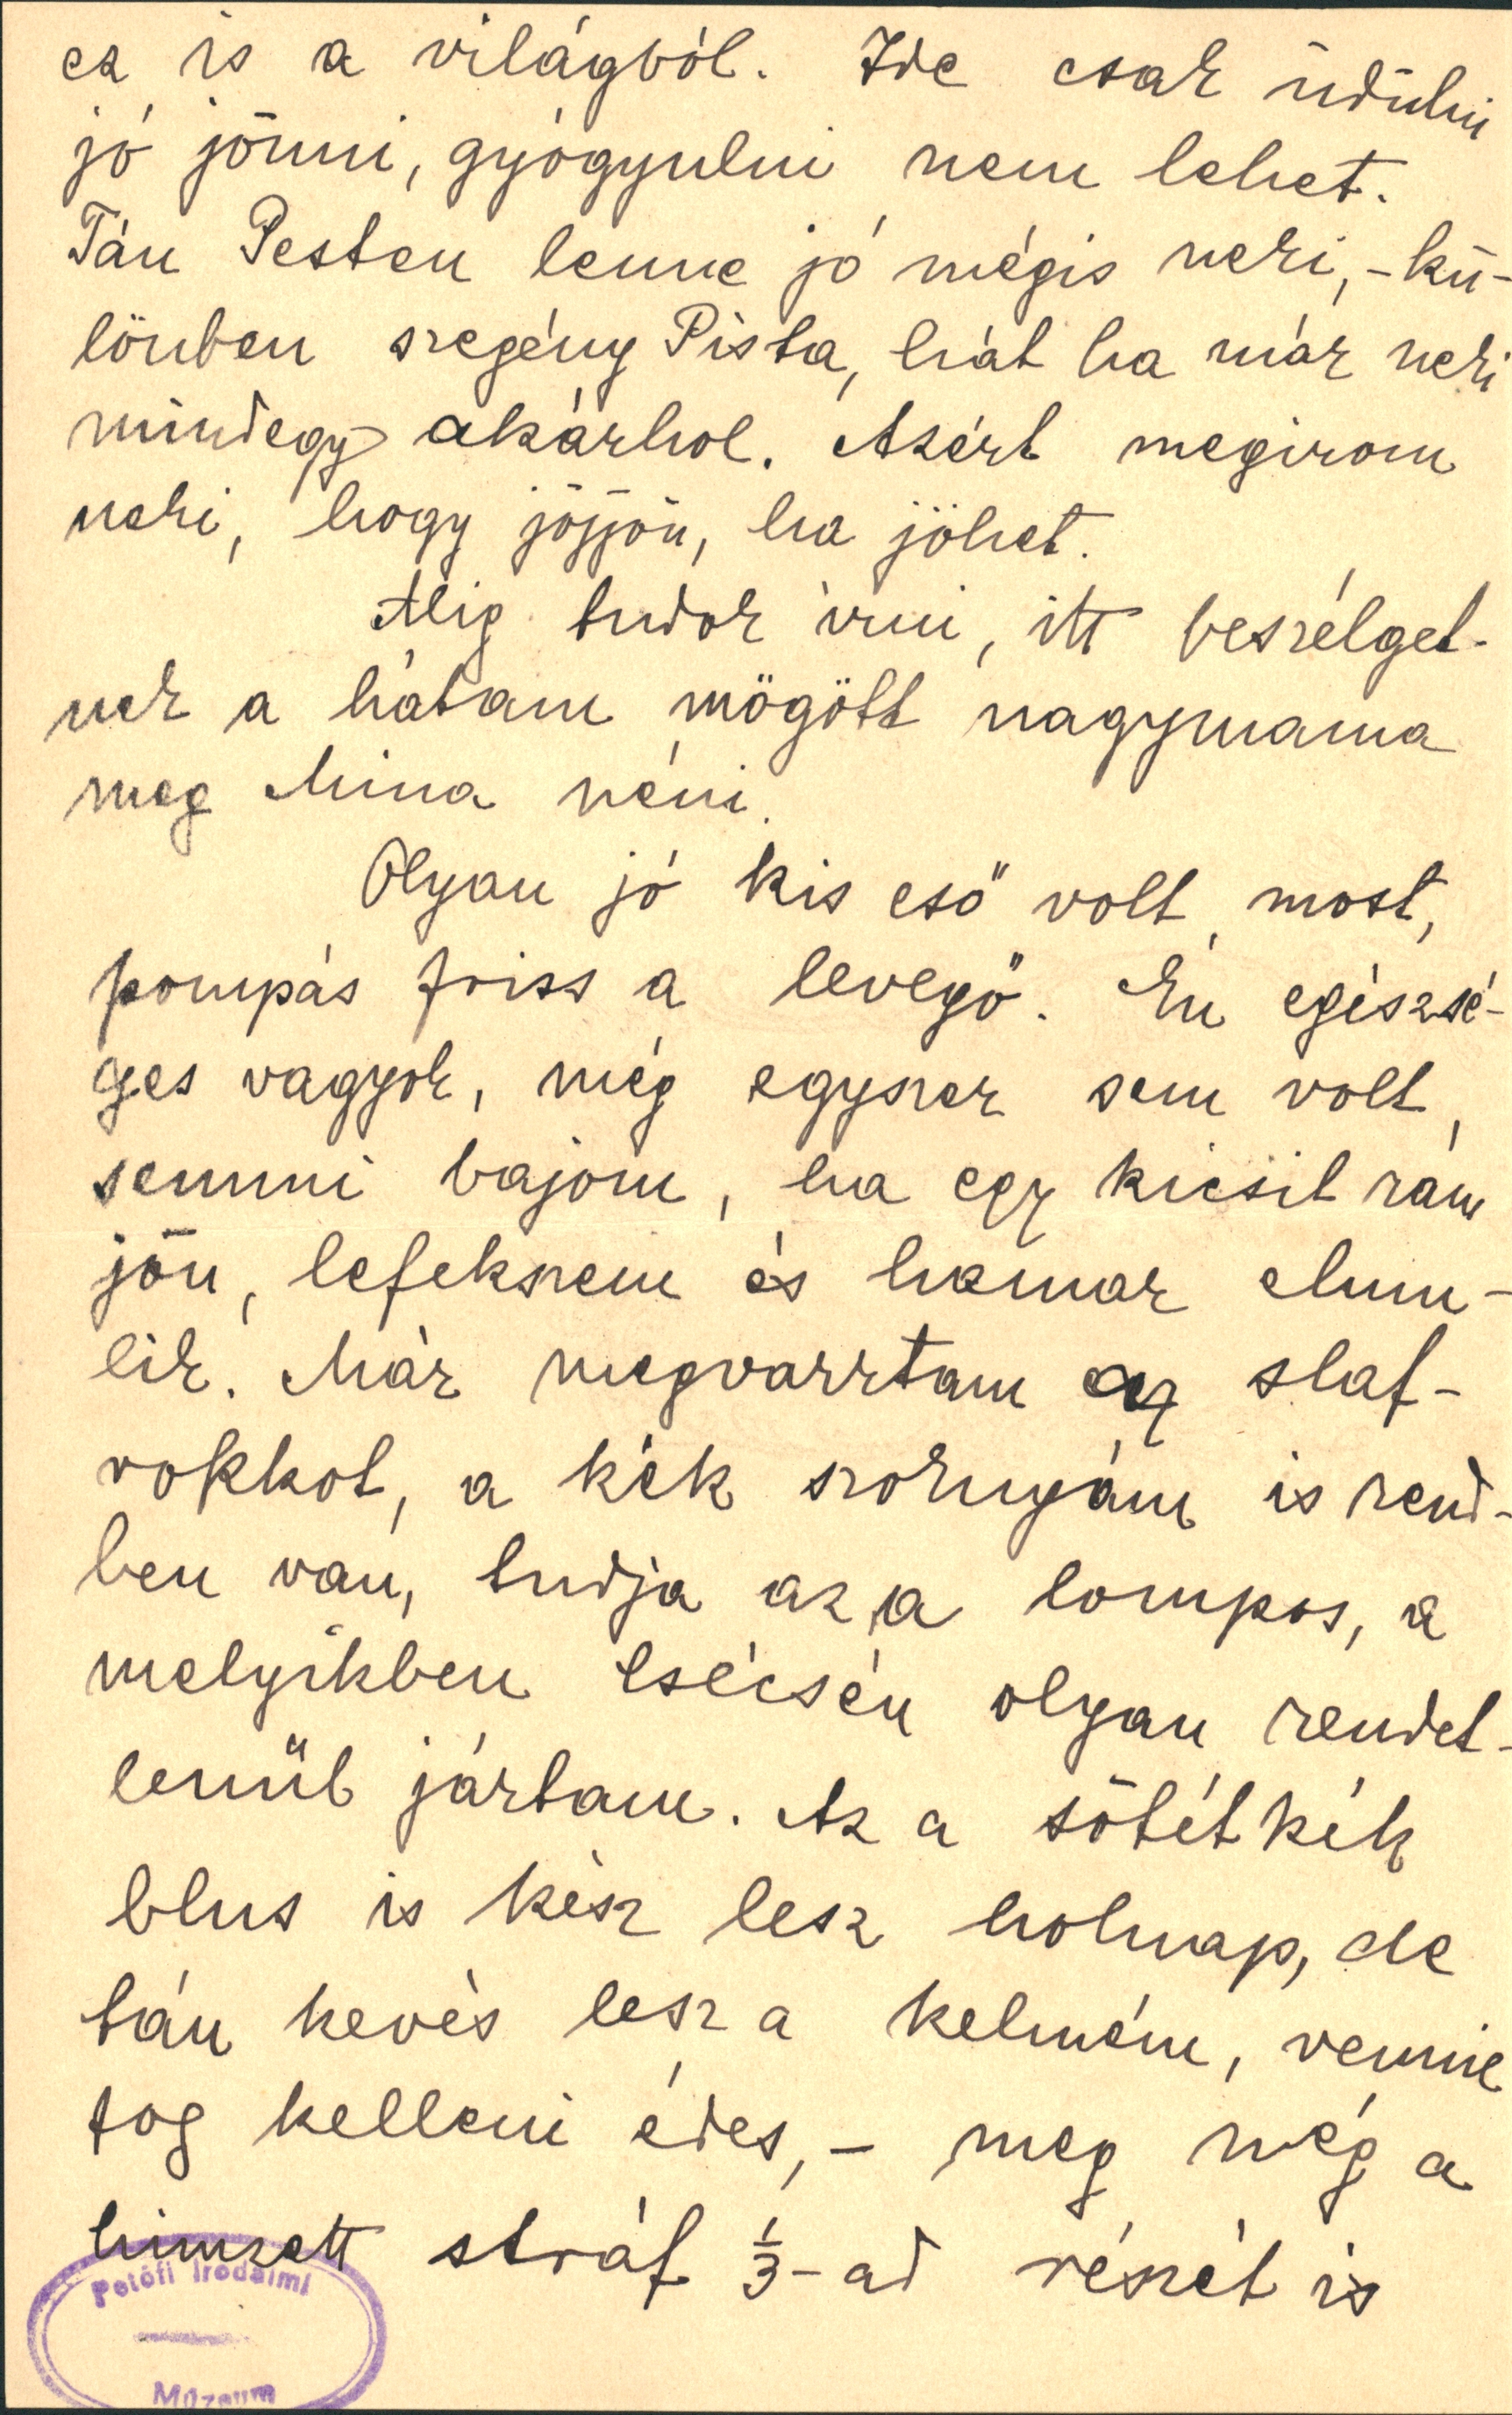 ez is a világból. Ide csak üdülni
jó jönni, gyógyulni nem lehet.
Tán Pesten lenne jó mégis neki, - kü-
lönben szegény Pista, hát ha már neki
mindegy akárhol. Azért megirom
neki, hogy jöjjön, ha jöhet.
Alig tudok irni, itt beszélget-
nek a hátam mögött nagymama
meg Mina néni.
Olyan jó kis eső volt most,
pompás friss a levegő. Én egészsé-
ges vagyok, még egyszer sem volt
semmi bajom, ha egy kicsit rám
jön, lefekszem és hamar elmu-
lik. Már megvarrtam az slaf-
rokkot, a kék szoknyám is rend-
ben van, tudja az a lompos, a
melyikben Csécsén olyan rendet-
lenül jártam. Az a sötét kék
blus is kész lesz holnap, de
tán kevés lesz a kelmém, vennie
fog kelleni édes, - meg még a
himzett stráf 1/3-ad részét is
Petőfi Irodalmi
Múzeum